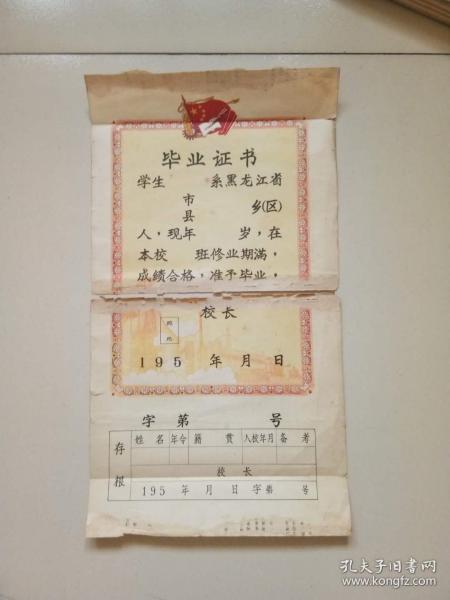 毕业证书
学生 系黑龙江省
市
县 乡(区)
人，现年 岁，在
本校 班修业期满，
成绩合格，准予毕业，
校长
195 年 月 日
字第 号
存根
姓名 年令 籍贯 入校年月 备考
校长
195 年 月 日 字第 号
孔夫子旧书网
www.kongfz.com